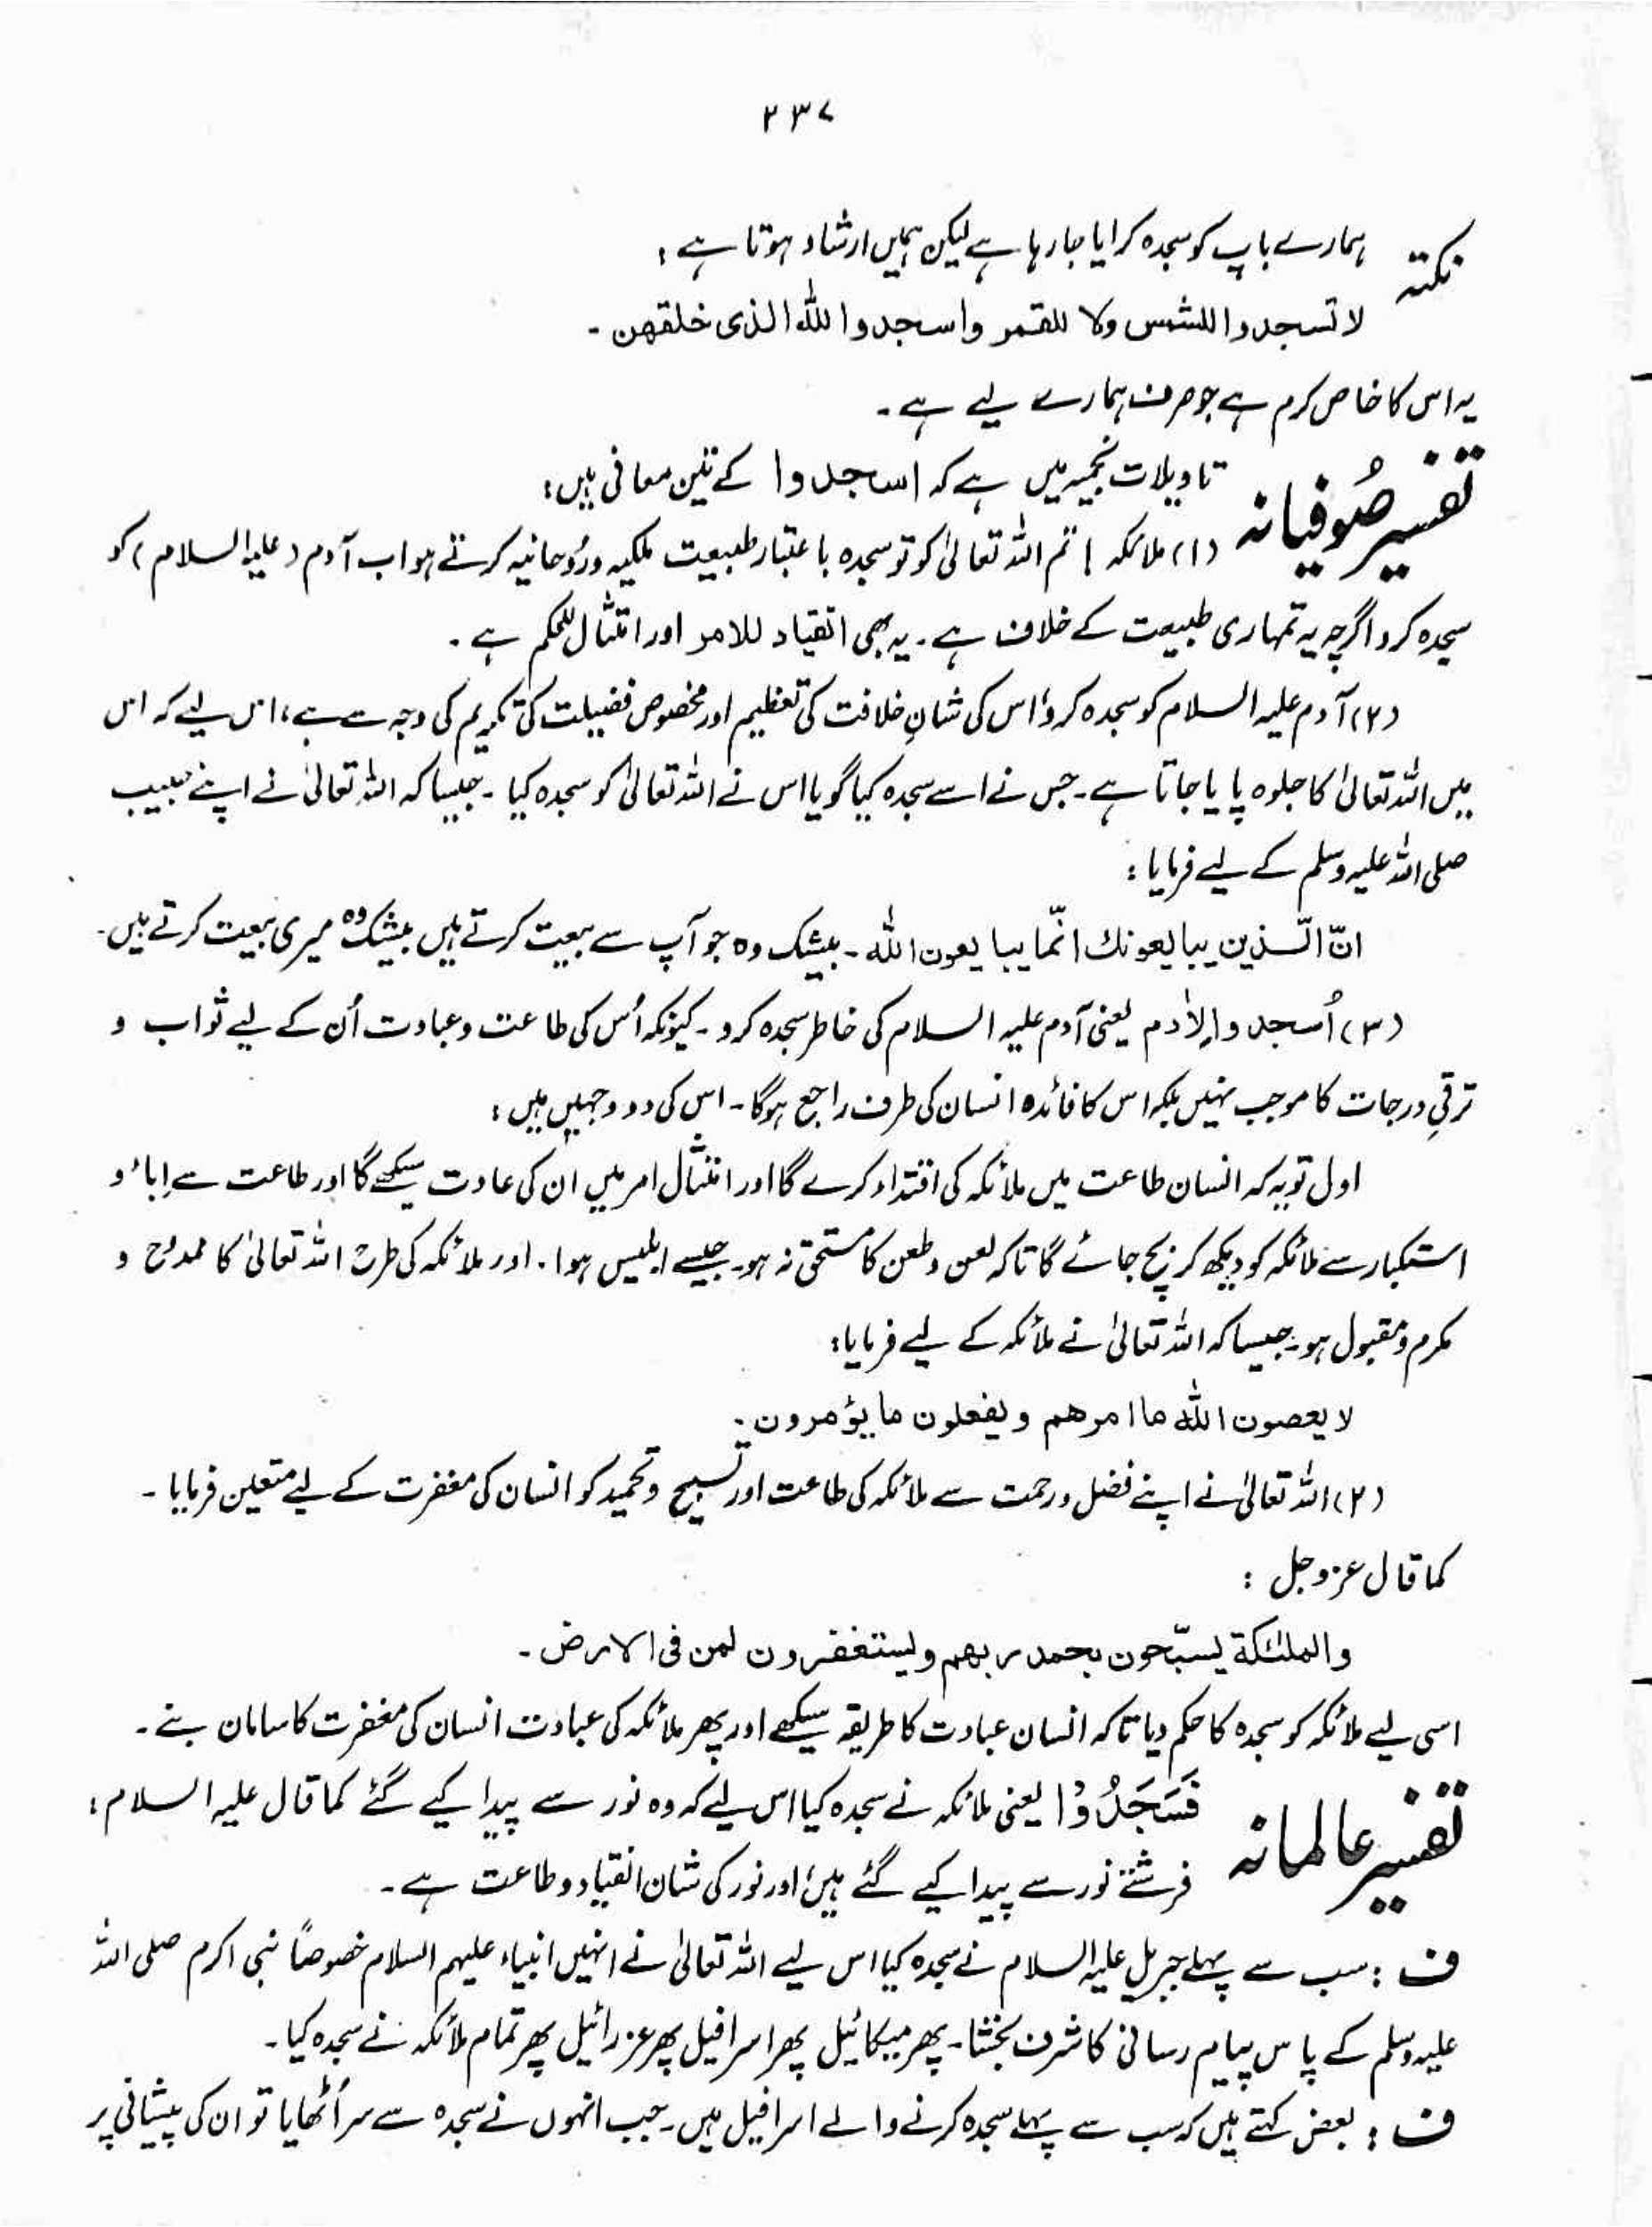 ۲۳۷
نکتہ ہمارے باپ کو سجدہ کرایا جا رہا ہے لیکن ہمیں ارشاد ہوتا ہے :
لا تسجدوا للشمس ولا للقمر واسجدوا للّٰہ الذی خلقھن ۔
یہ اس کا خاص کرم ہے جو صرف ہمارے لیے ہے ۔
تفسیر صُوفیانہ تاویلات نجمیہ میں ہے کہ اسجدوا کے تین معانی ہیں :
(۱) ملائکہ ! تم اللہ تعالیٰ کو تو سجدہ باعتبار طبیعت ملکیہ و رُوحانیہ کرتے ہو اب آدم (علیہ السلام) کو
سجدہ کرو اگرچہ یہ تمہاری طبیعت کے خلاف ہے ۔ یہ بھی انقیاد للامر اور امتثال للحکم ہے ۔
(۲) آدم علیہ السلام کو سجدہ کرو اس کی شانِ خلافت کی تعظیم اور مخصوص فضیلت کی تکریم کی وجہ سے ہے ، اس لیے کہ اس
میں اللہ تعالیٰ کا جلوہ پایا جاتا ہے ۔ جس نے اسے سجدہ کیا گویا اس نے اللہ تعالیٰ کو سجدہ کیا ۔ جیسا کہ اللہ تعالیٰ نے اپنے حبیب
صلی اللہ علیہ وسلم کے لیے فرمایا :
انّ الّذین یبایعونك انّما یبایعون اللّٰہ ۔ بیشک وہ جو آپ سے بیعت کرتے ہیں بیشک وہ میری بیعت کرتے ہیں ۔
(۳) اُسجدوا لِاٰدم یعنی آدم علیہ السلام کی خاطر سجدہ کرو ۔ کیونکہ اُس کی طاعت و عبادت اُن کے لیے ثواب و
ترقیِ درجات کا موجب نہیں بلکہ اس کا فائدہ انسان کی طرف راجع ہوگا ۔ اس کی دو وجہیں ہیں :
اول تو یہ کہ انسان طاعت میں ملائکہ کی اقتداء کرے گا اور امتثال امر میں ان کی عادت سیکھے گا اور طاعت سے اِباء و
استکبار سے ملائکہ کو دیکھ کر بچ جائے گا تاکہ لعن و طعن کا مستحق نہ ہو ۔ جیسے ابلیس ہوا ۔ اور ملائکہ کی طرح اللہ تعالیٰ کا ممدوح و
مکرم و مقبول ہو ۔ جیسا کہ اللہ تعالیٰ نے ملائکہ کے لیے فرمایا :
لا یعصون اللّٰہ ما امرھم و یفعلون ما یؤمرون ۔
(۲) اللہ تعالیٰ نے اپنے فضل و رحمت سے ملائکہ کی طاعت اور تسبیح و تحمید کو انسان کی مغفرت کے لیے متعین فرمایا ۔
کما قال عزوجل :
والملئکة یسبّحون بحمد ربھم ویستغفرون لمن فی الارض ۔
اسی لیے ملائکہ کو سجدہ کا حکم دیا تاکہ انسان عبادت کا طریقہ سیکھے اور پھر ملائکہ کی عبادت انسان کی مغفرت کا سامان بنے ۔
تفسیر عالمانہ فَسَجَدُوْا یعنی ملائکہ نے سجدہ کیا اس لیے کہ وہ نور سے پیدا کیے گئے کما قال علیہ السلام :
فرشتے نور سے پیدا کیے گئے ہیں ، اور نور کی شان انقیاد و طاعت ہے ۔
ف : سب سے پہلے جبریل علیہ السلام نے سجدہ کیا اس لیے اللہ تعالیٰ نے انہیں انبیاء علیہم السلام خصوصاً نبی اکرم صلی اللہ
علیہ وسلم کے پاس پیام رسانی کا شرف بخشا ۔ پھر میکائیل پھر اسرافیل پھر عزرائیل پھر تمام ملائکہ نے سجدہ کیا ۔
ف : بعض کہتے ہیں کہ سب سے پہلے سجدہ کرنے والے اسرافیل ہیں ۔ جب انہوں نے سجدہ سے سر اُٹھایا تو ان کی پیشانی پر